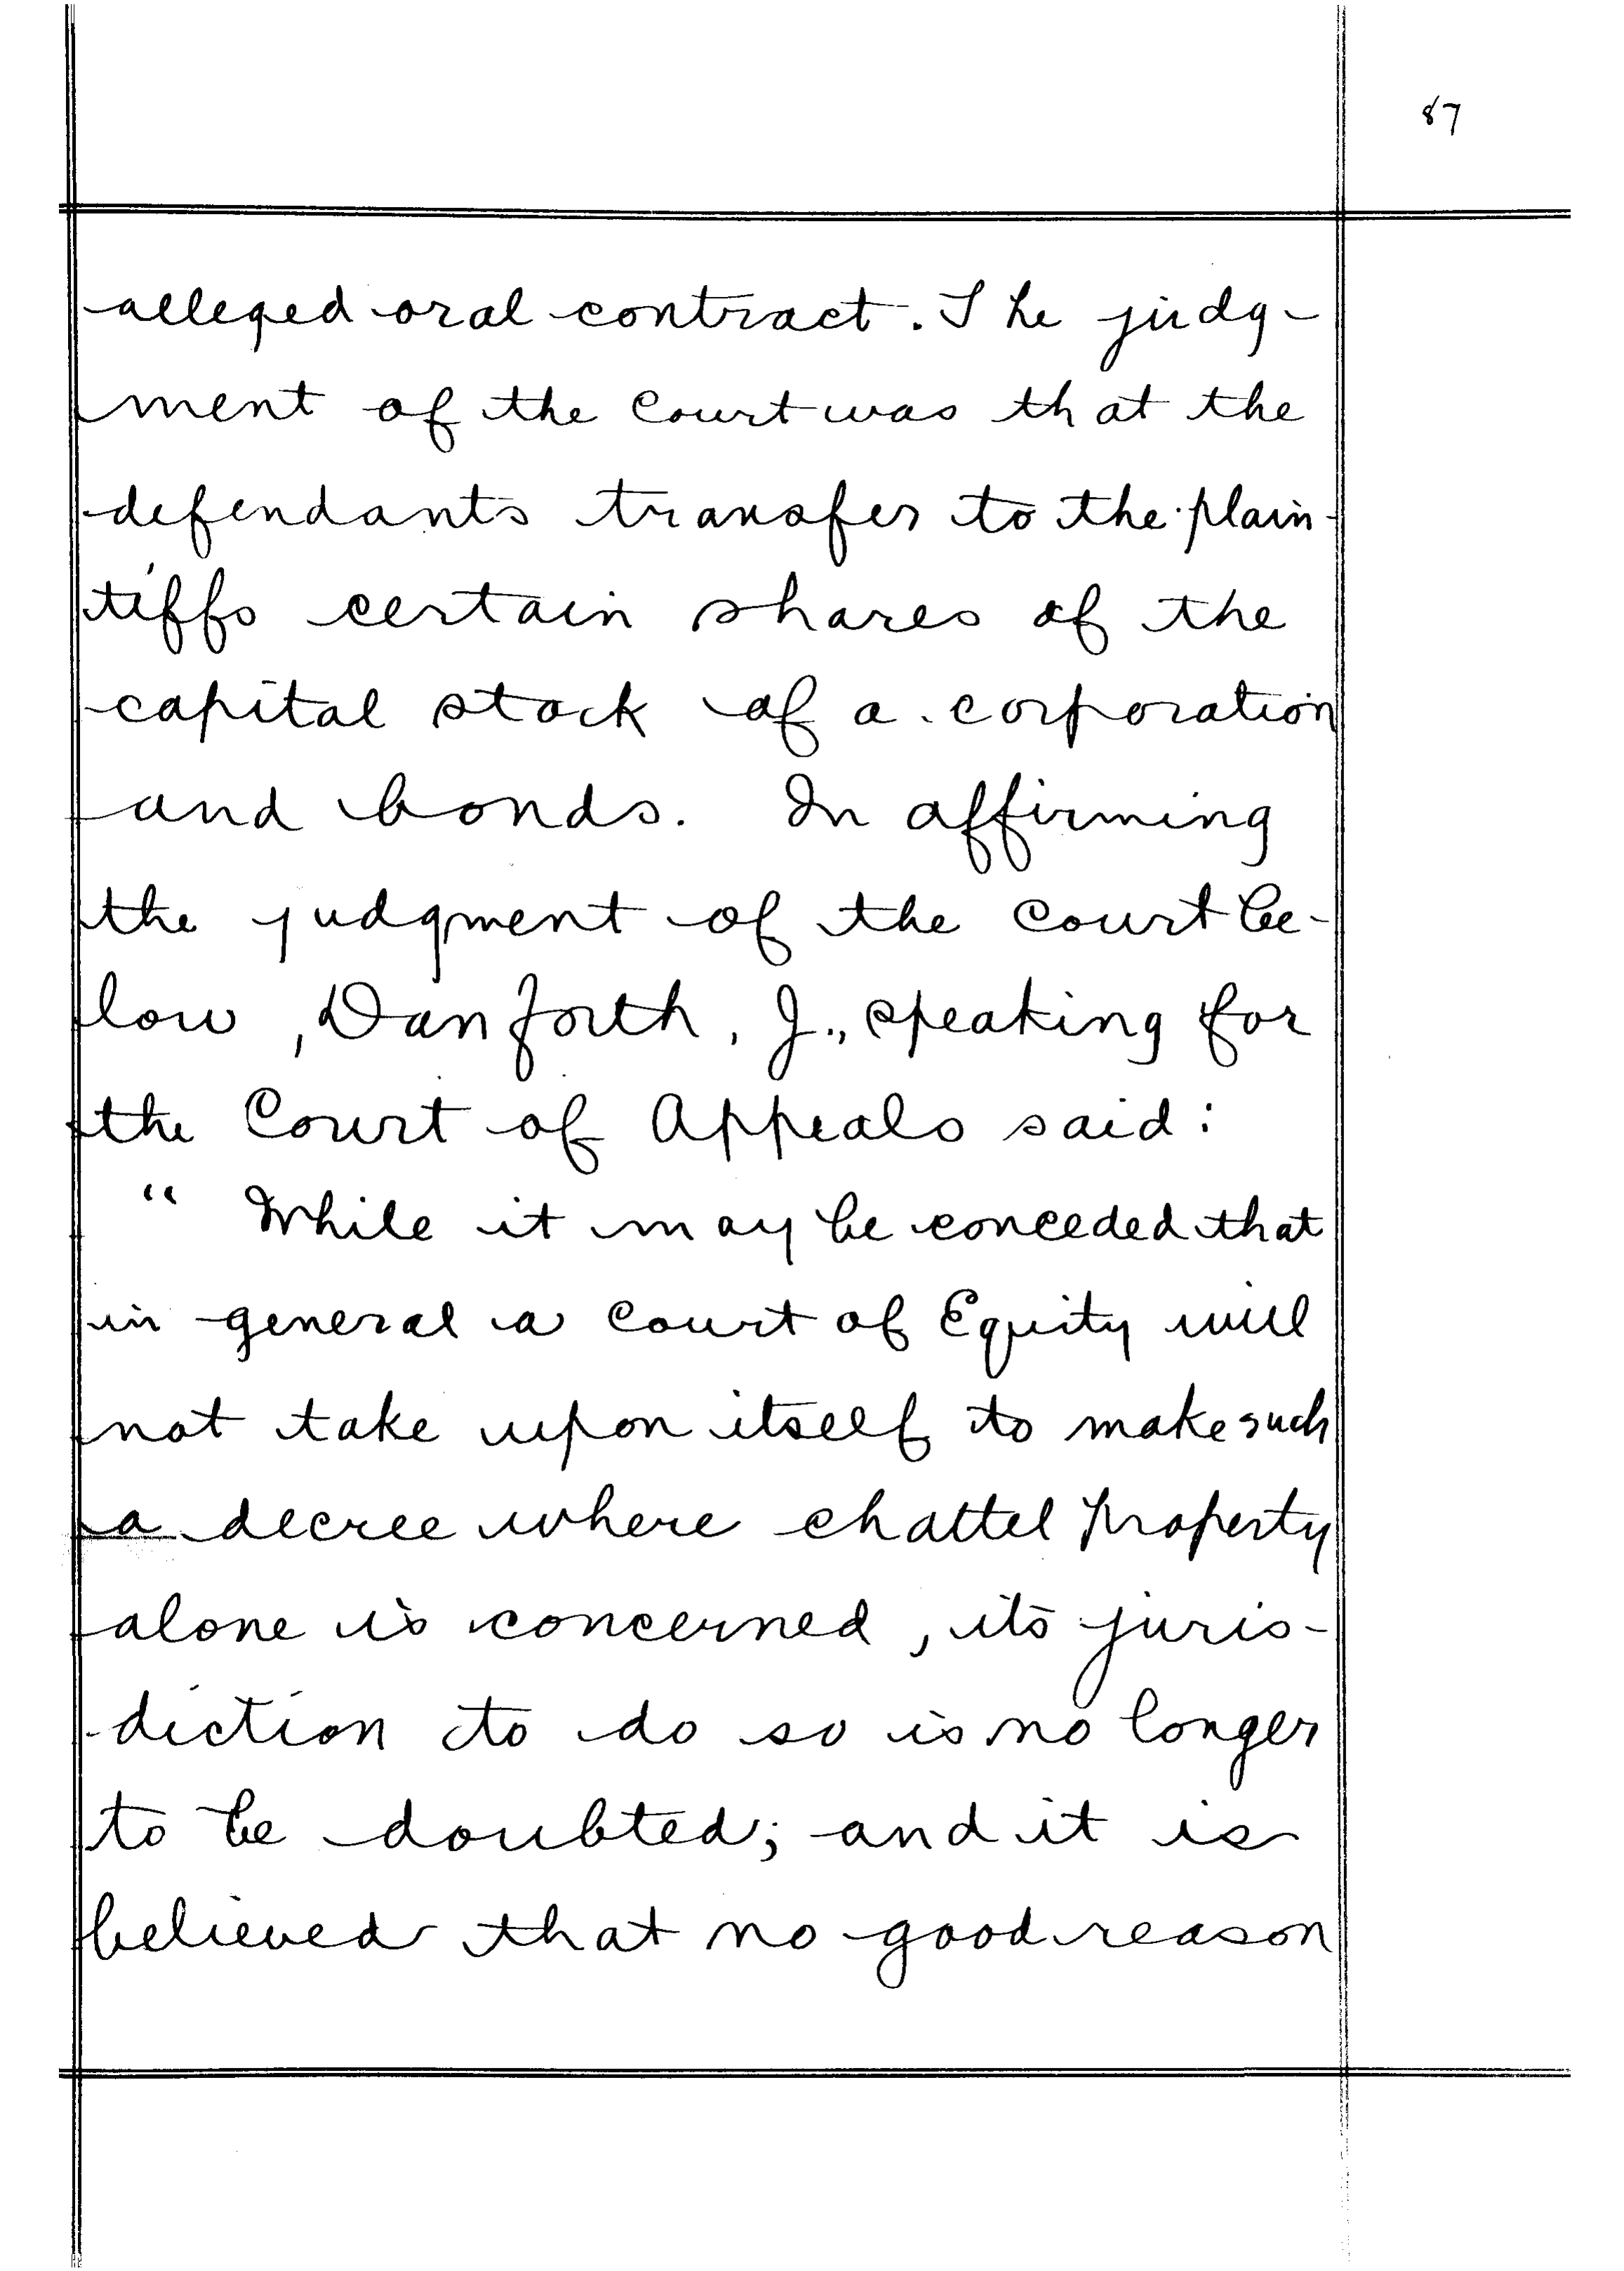 87
alleged oral contract. The judg-
ment of the Court was that the
defendants transfer to the plain-
tiffs certain shares of the
capital stock of a corporation
and bonds. In affirming
the judgment of the Court be-
low, Danforth, J., speaking for
the Court of Appeals said:
" While it may be conceded that
in general a Court of Equity will
not take upon itself to make such
a decree where chattel property
alone is concerned, its juris-
diction to do so is no longer
to be doubted; and it is
believed that no good reason